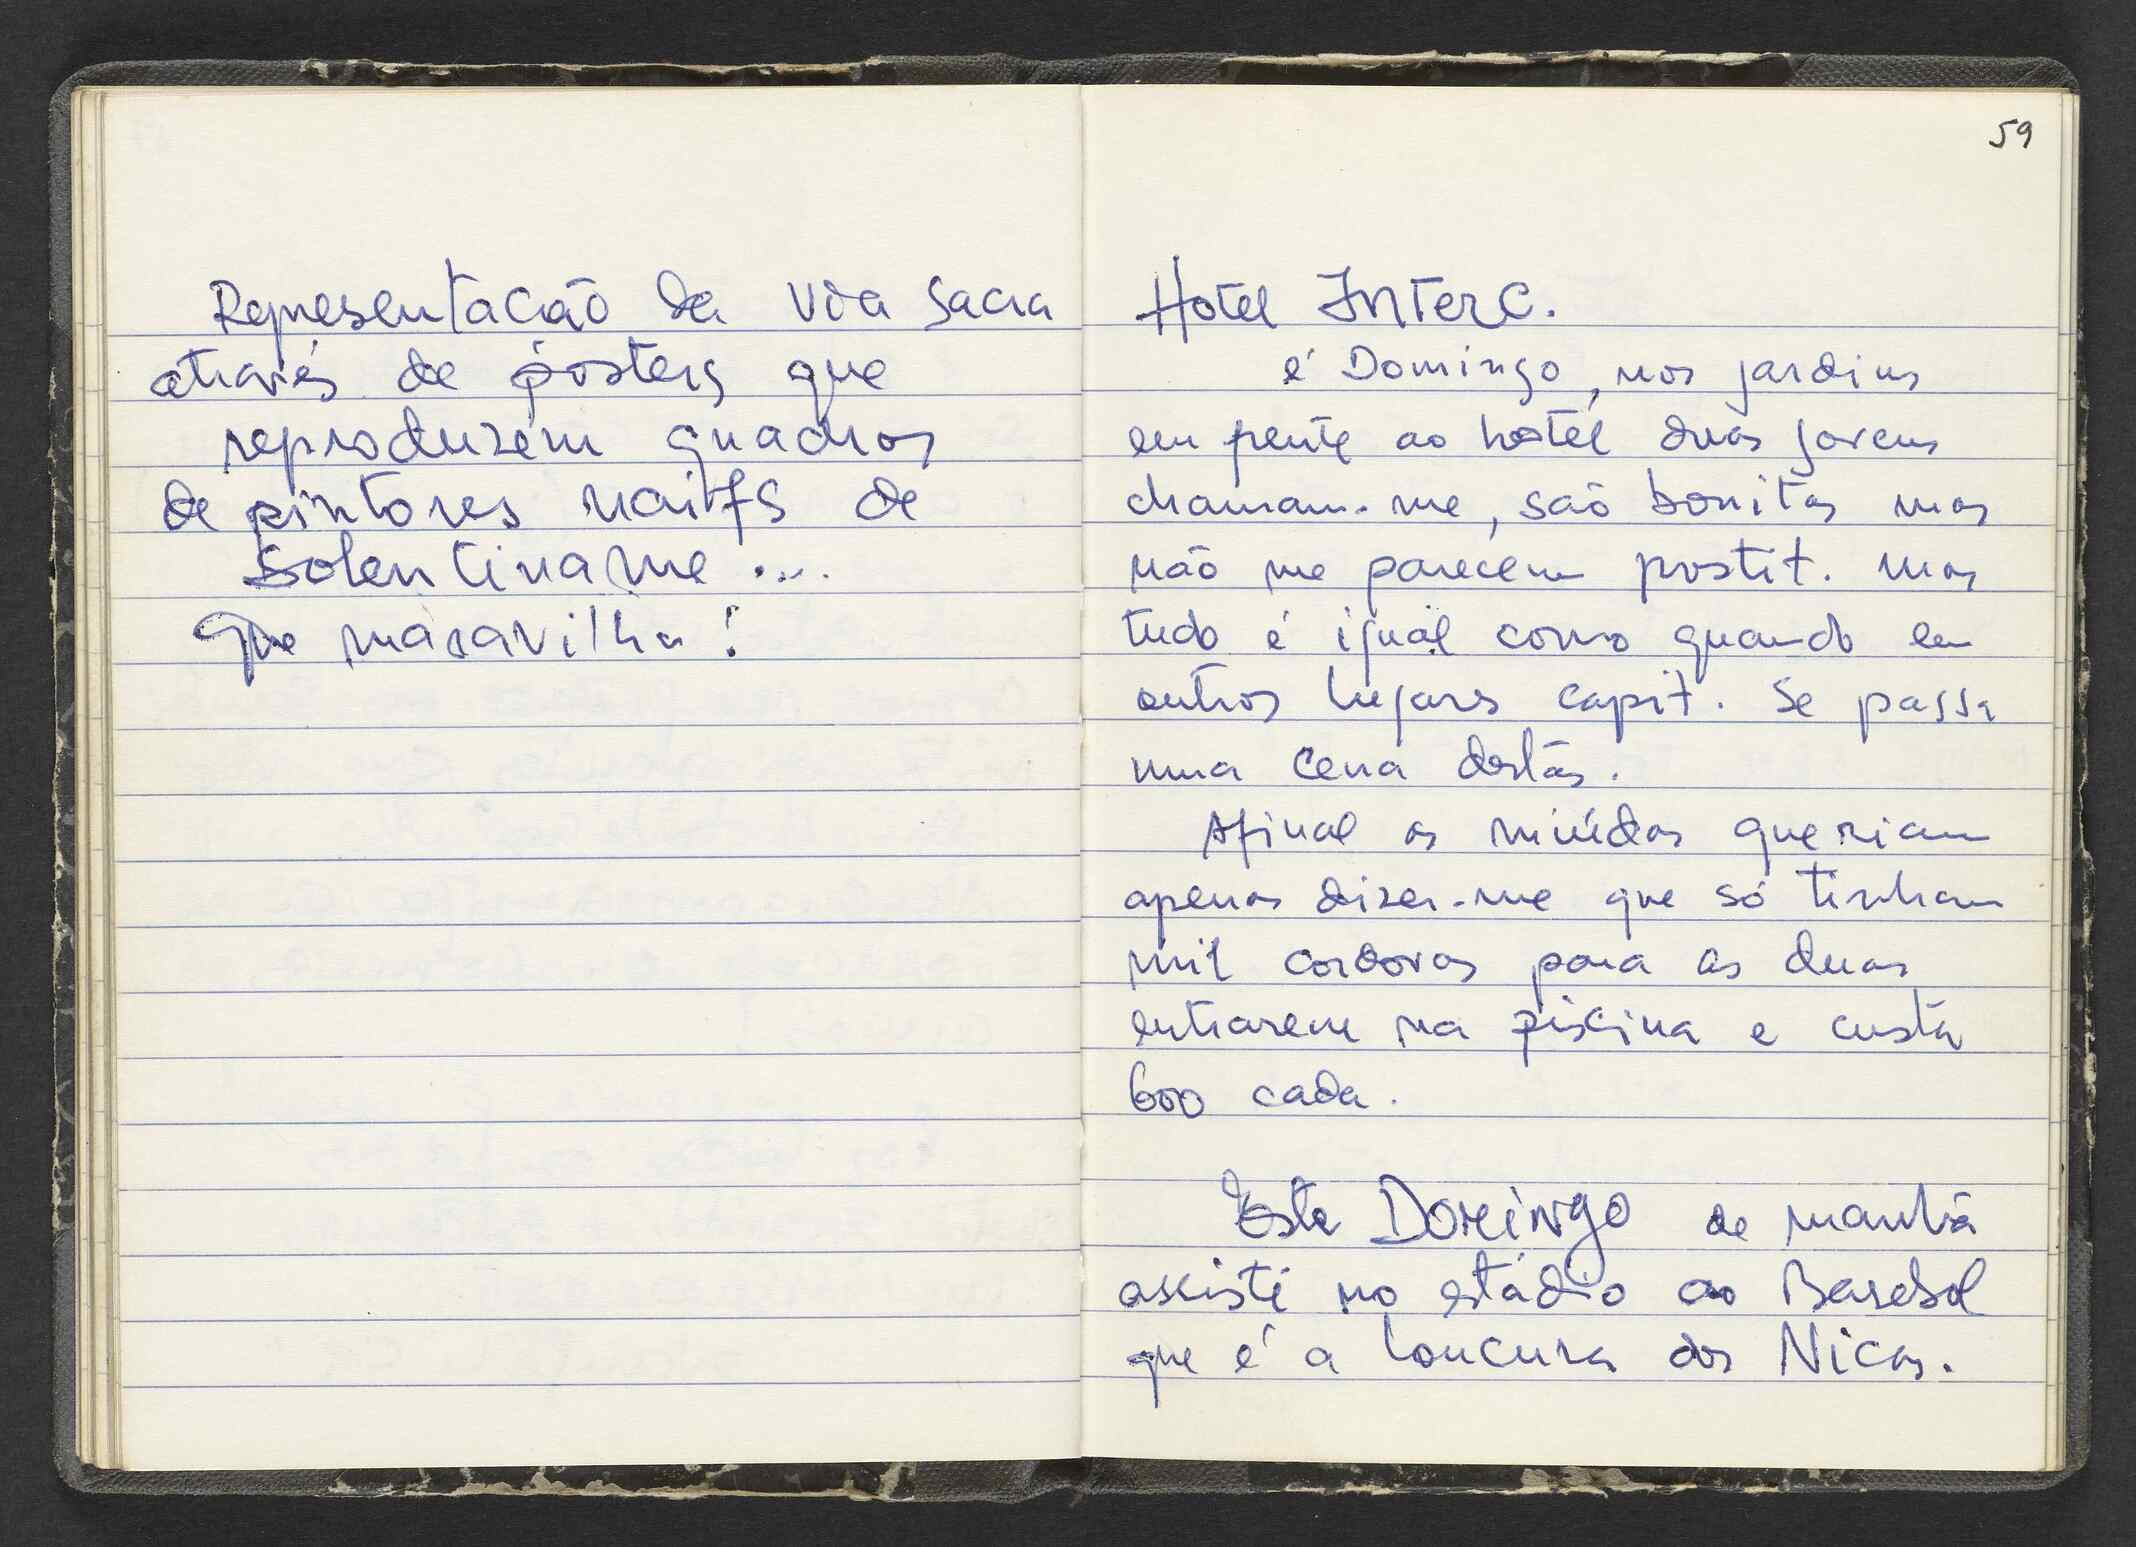 Representação da Via Sacra
através de posters que
reproduzem quadros
de pintores naifs de
Solentiname ....
Que maravilha !
59
Hotel InterC.
é Domingo, nos jardins
em frente ao hotel duas jovens
chamam-me, são bonitas mas
não me parecem postit. mas
tudo é igual como quando em
outros lugares capit. se passa
uma cena destas.
Afinal as miúdas queriam
apenas dizer-me que só tinham
mil cordovas para as duas
entrarem na piscina e custa
600 cada.
Este Domingo de manhã
assisti no estádio ao Basebol
que é a loucura dos Nicas.